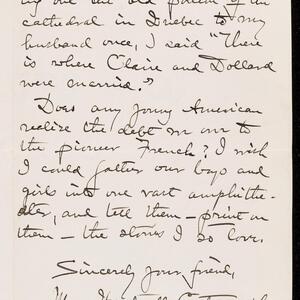 ing out the old portion of the
cathedral in Quebec to my
husband once, I said "There
is where Claire and Dollard
were married."
Does any young American
realize the debt we owe to
the pioneer French? I wish
I could gather our boys and
girls into one vast amphithe-
ater, and tell them — print on
them — the stories I so love.
Sincerely your friend,